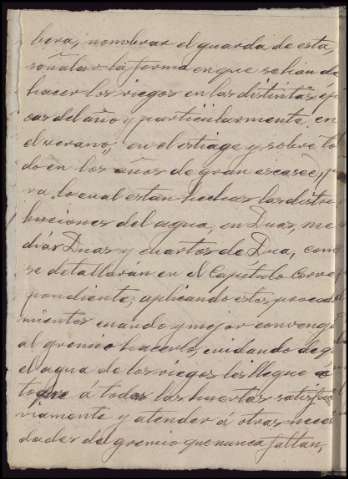 bera; nombrar el guarda de esta,
señalar la forma en que se han de
hacer los riegos en las distintas épo
cas del año y particularmente en
el verano, en el estiage y sobre to
do en los años de gran escasez, pa
ra lo cual están hechas las distri
buciones del agua, en Duas, me
dias Duas y cuartos de Dua, como
se detallarán en el Capítulo corres
pondiente; aplicando estos procedi
mientos cuando y mejor convenga
al gremio hacerlo, cuidando de que
el agua de los riegos les llegue o
toque á todas las huertas satisfac
riamente y atender á otras nece
dades de gremio que nunca faltan,